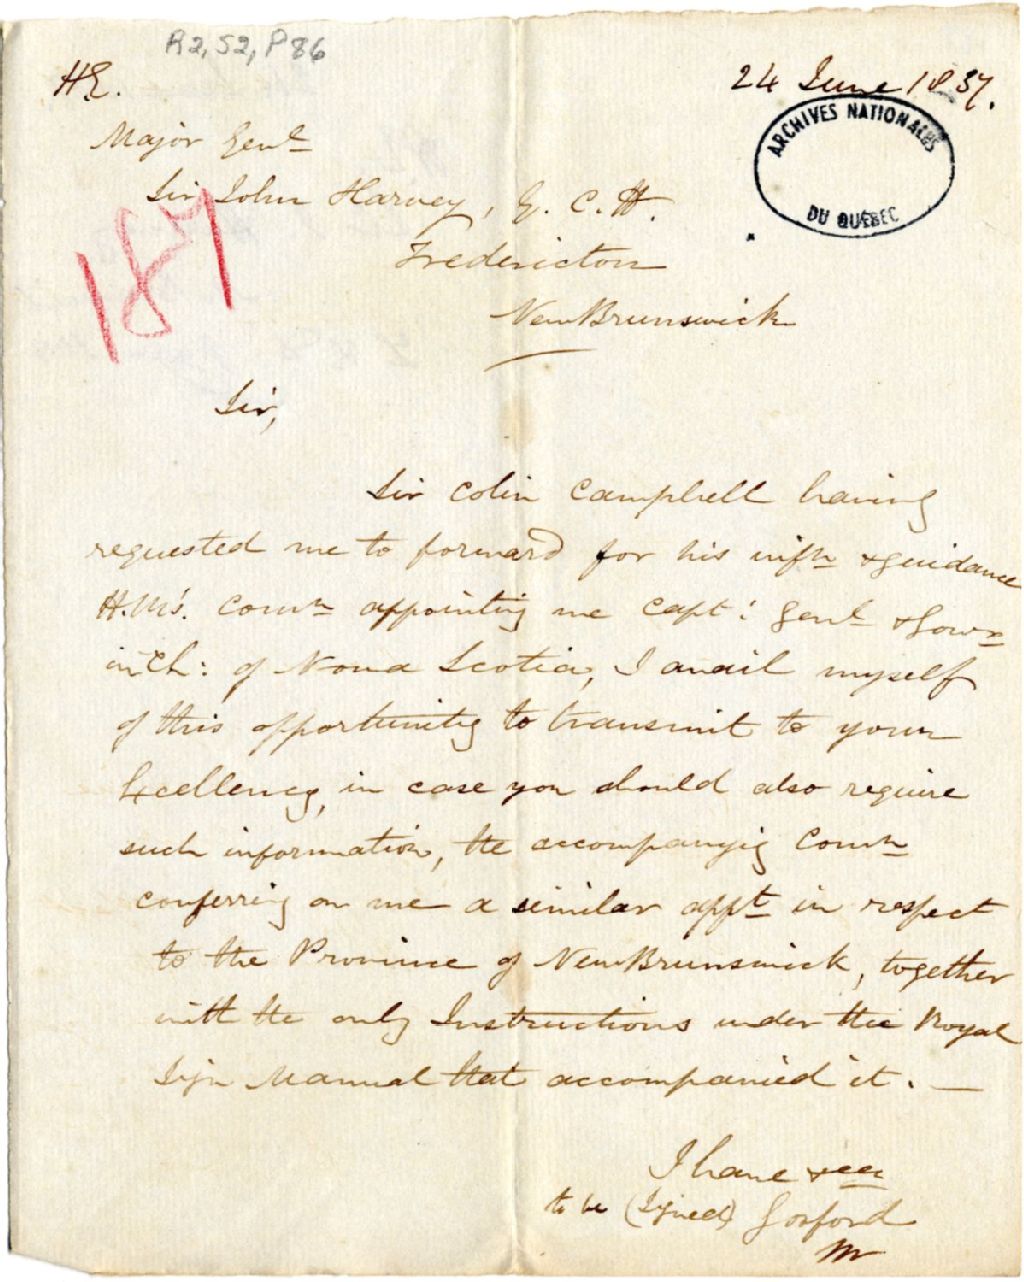 R2, S2, P86
HE.
24 June 1837.
ARCHIVES NATIONALES
DU QUÉBEC
Major Genl
Sir John Harvey, G. C. H.
Fredericton
New Brunswick
187
Sir,
Sir Colin Campbell having
requested me to forward for his infn & guidance
H.M's. Comn appointing me Capt: Genl & Govr
in Ch: of Nova Scotia, I avail myself
of this opportunity to transmit to your
Excellency, in case you should also require
such information, the accompanyig Comn
conferring on me a similar appt in respect
to the Province of New Brunswick, together
with the only Instructions under the Royal
Sign Manual that accompanied it. —
I have &ca
to be (Signed) Gosford